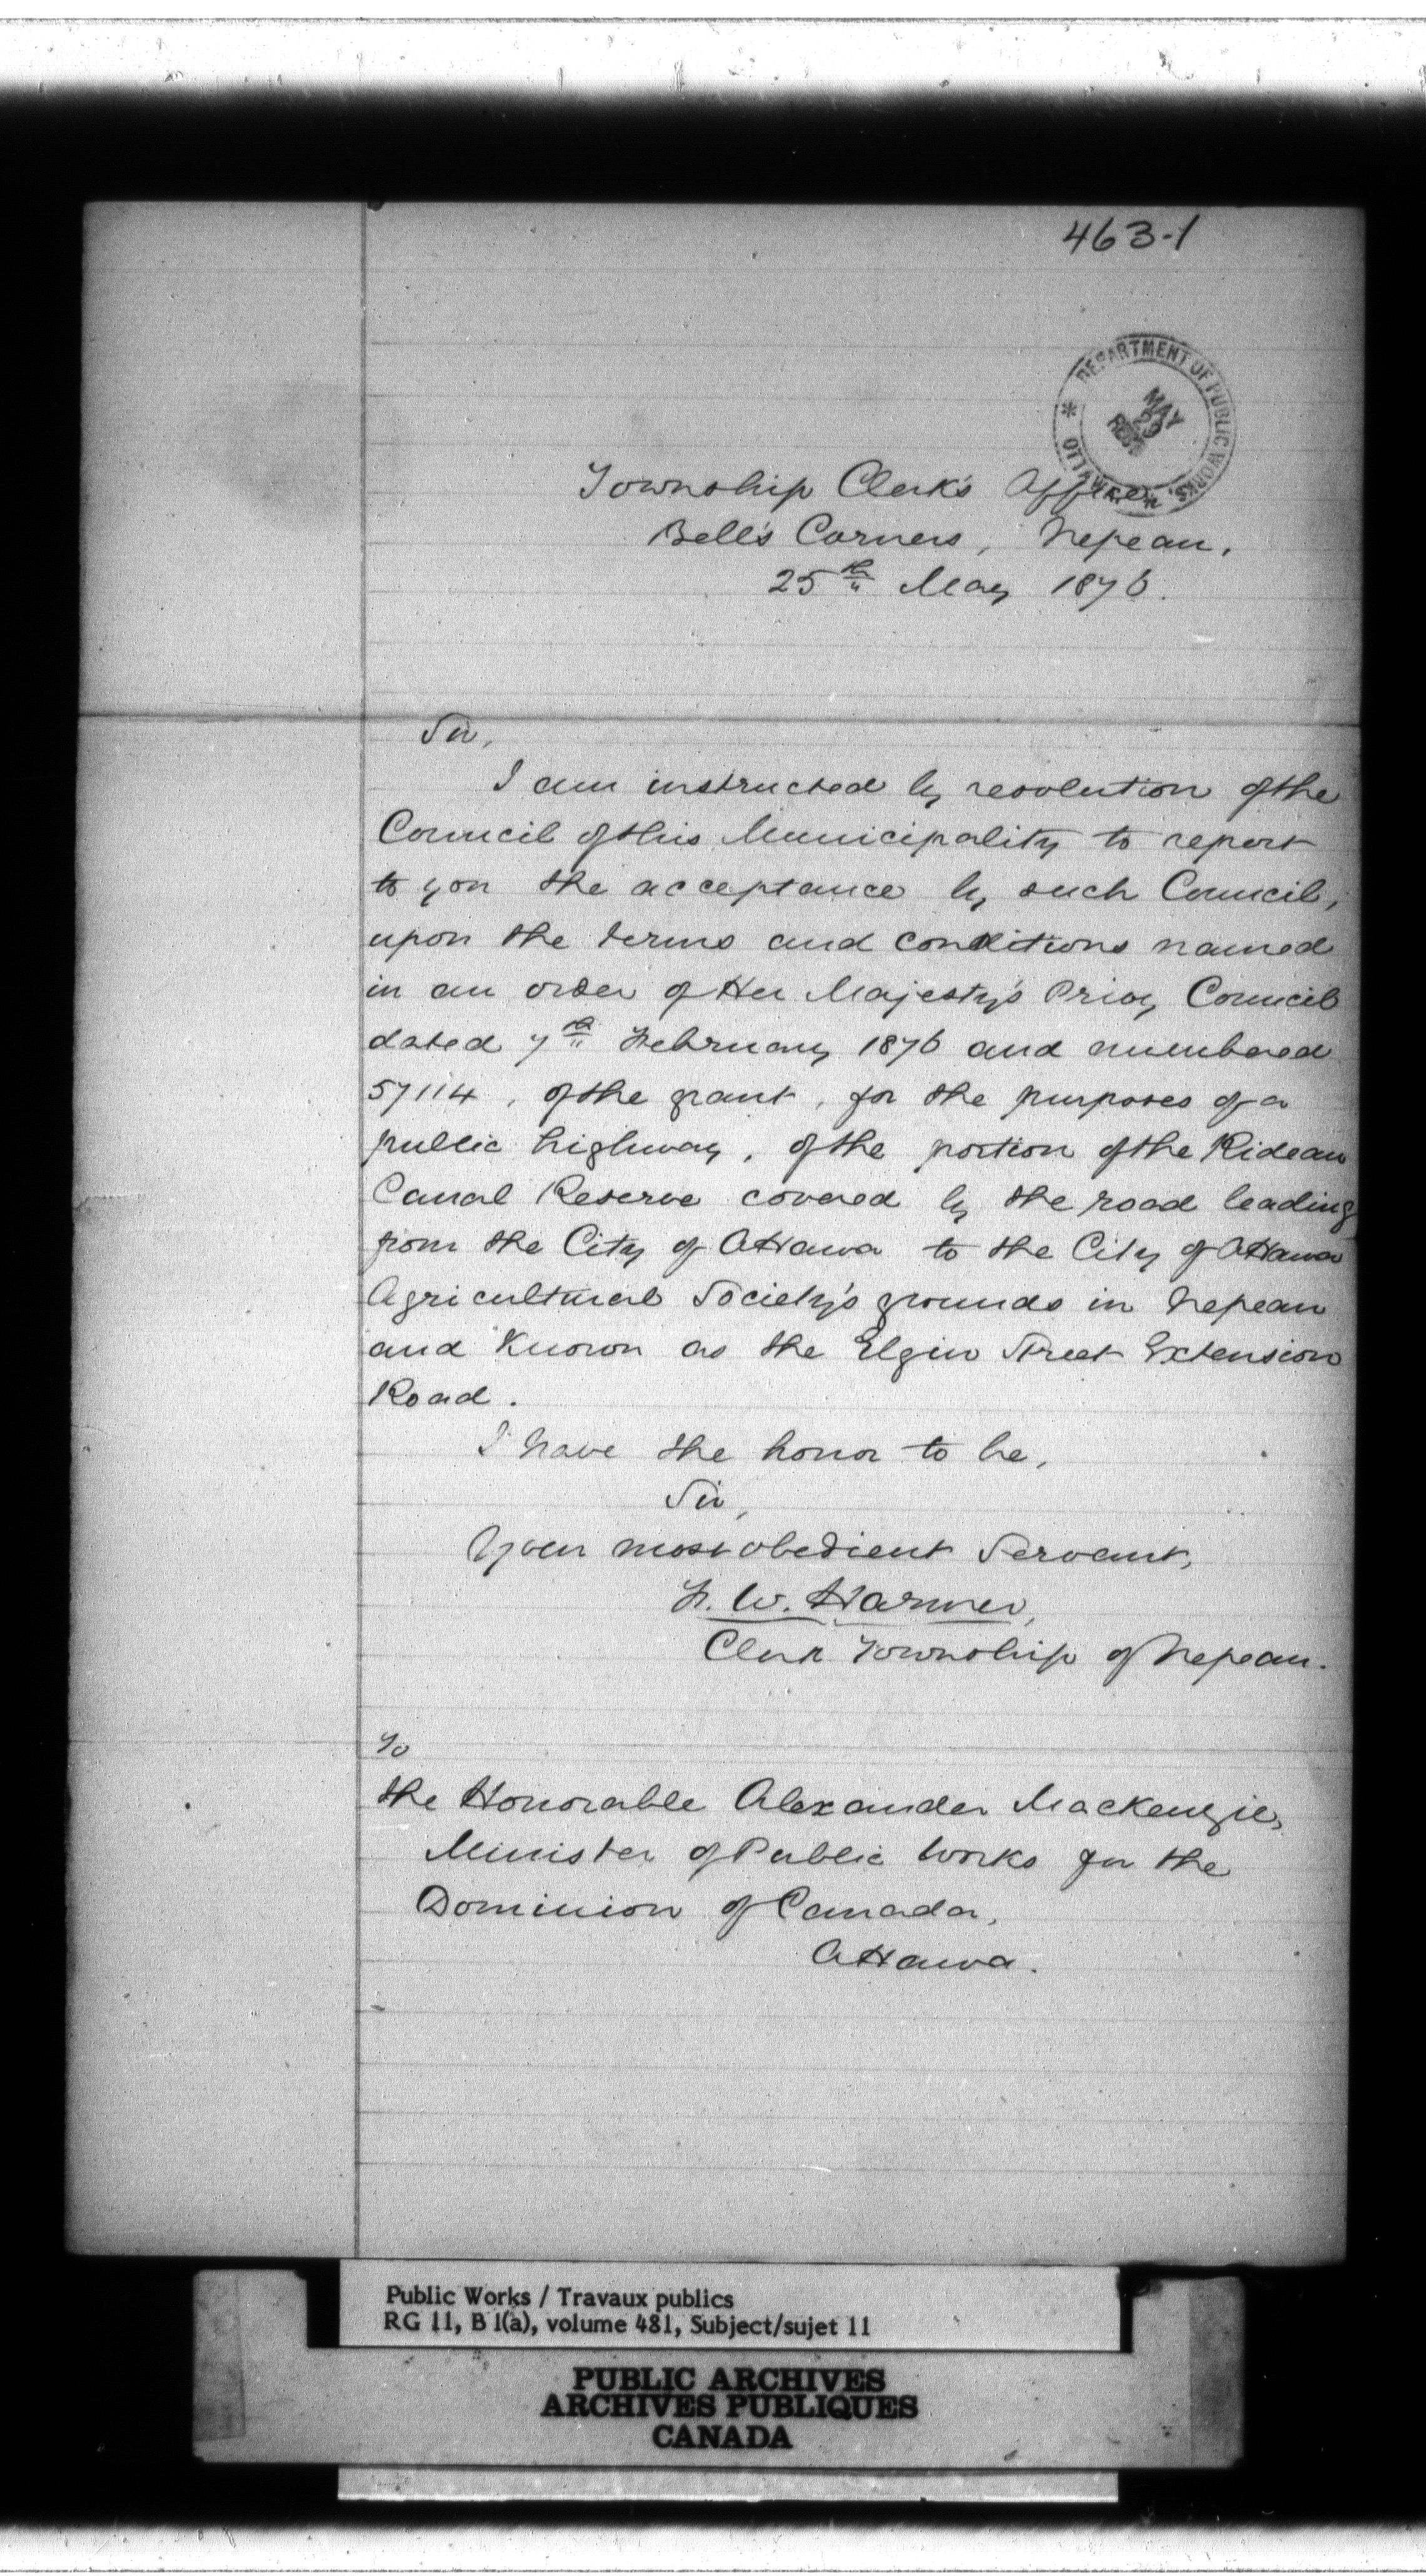 463-1
DEPARTMENT OF PUBLIC WORKS.
MAY
29
Township Clerk's Office
Bell's Corners, Nepean,
25th May 1876.
Sir,
I am instructed by resolution of the
Council of this Municipality to report
to you the acceptance by such Council,
upon the terms and conditions named
in an order of Her Majesty's Privy Council
dated 7th February 1876 and numbered
57114, of the grant, for the purposes of a
public highway, of the portion of the Rideau
Canal Reserve covered by the road leading
from the City of Ottawa to the City of Ottawa
Agricultural Society's grounds in Nepean
and Known as the Elgin Street Extension
Road.
I have the honor to be,
Sir,
Your most obedient Servant,
F. W. Harmer,
Clerk Township of Nepean.
To
the Honorable Alexander Mackenzie,
Minister of Public Works for the
Dominion of Canada,
Ottawa.
Public Works / Travaux publics
RG 11, B 1(a), volume 481, Subject/sujet 11
PUBLIC ARCHIVES
ARCHIVES PUBLIQUES
CANADA